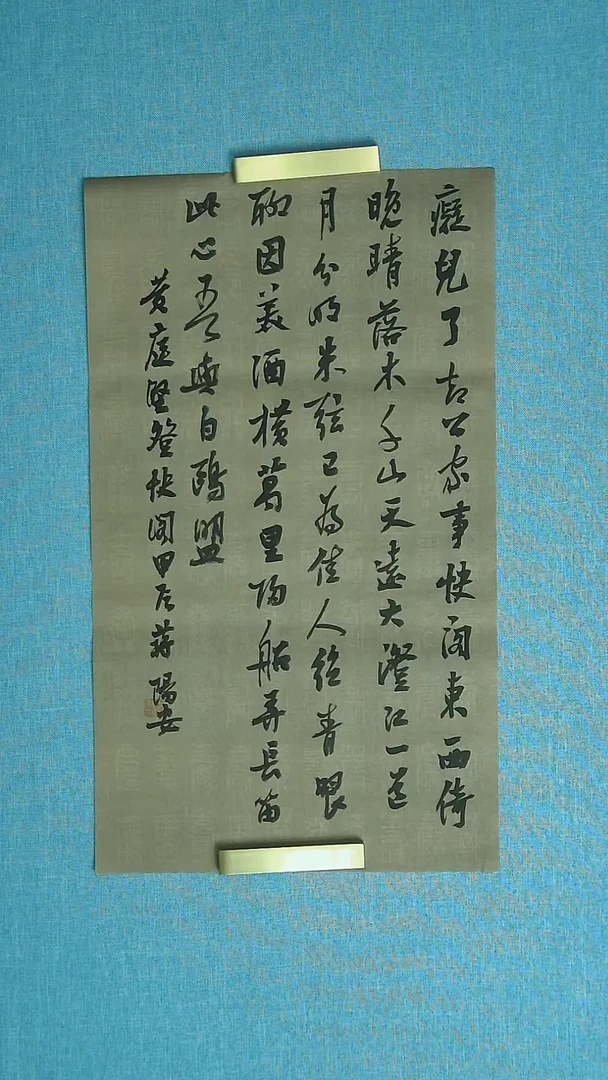 癡兒了却公家事快閣東西倚
晚晴落木千山天遠大澄江一道
月分明朱弦已為佳人絕青眼
聊因美酒橫萬里歸船弄長笛
此心吾與白鷗盟
黃庭堅登快閣甲辰蔣陽安